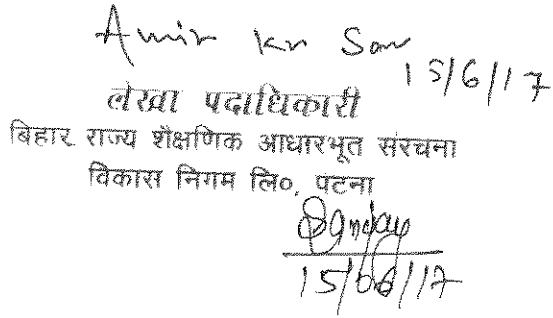 Amir Kr Sav
15/6/17
लेखा पदाधिकारी
बिहार राज्य शैक्षणिक आधारभूत संरचना
विकास निगम लि०, पटना
15/06/17